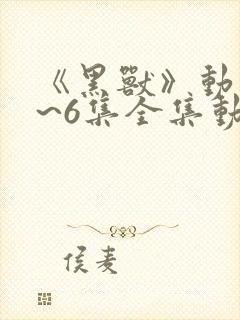 《黑獸》動
~6集全集動
侯麦